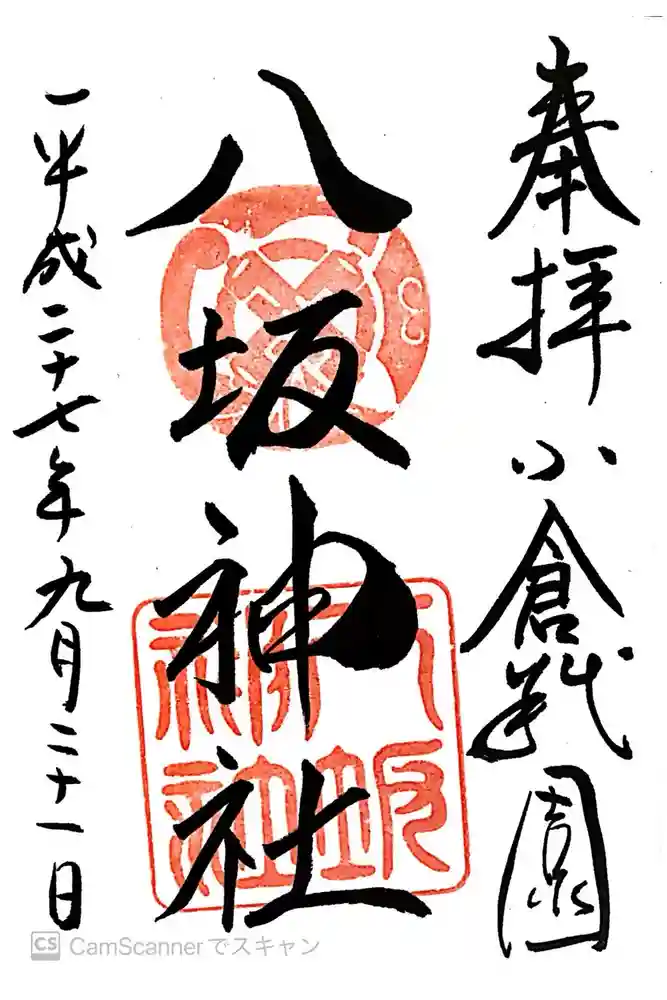 奉拝 小倉祇園
八坂神社
八坂
神社
平成二十七年九月二十一日
CS CamScannerでスキャン